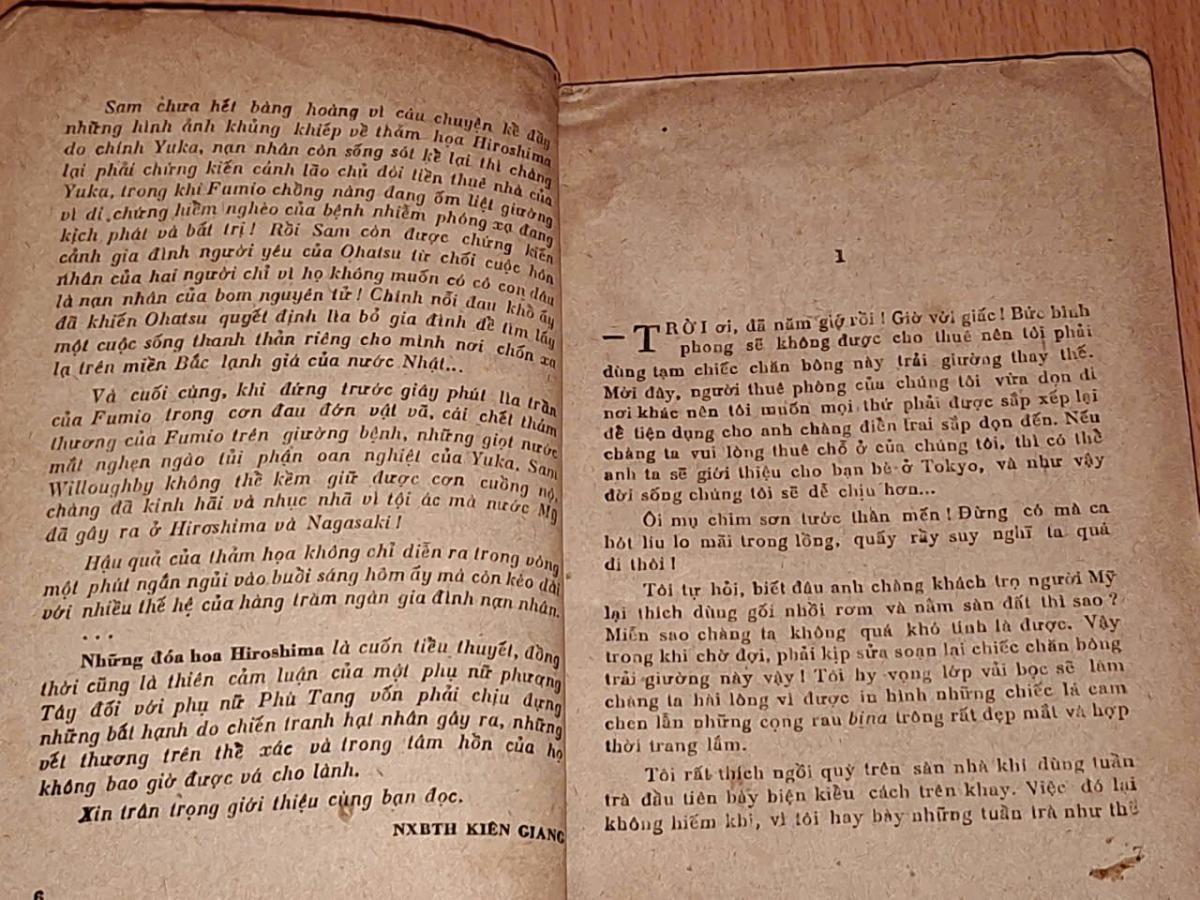 Sam chưa hết bàng hoàng vì câu chuyện kể đầy
những hình ảnh khủng khiếp về thảm họa Hiroshima
do chính Yuka, nạn nhân còn sống sót kể lại thì chàng
lại phải chứng kiến cảnh lão chủ đòi tiền thuê nhà của
Yuka, trong khi Fumio chồng nàng đang ốm liệt giường
vì di chứng hiểm nghèo của bệnh nhiễm phóng xạ đang
kịch phát và bất trị ! Rồi Sam còn được chứng kiến
cảnh gia đình người yêu của Ohatsu từ chối cuộc hôn
nhân của hai người chỉ vì họ không muốn có cô con dâu
là nạn nhân của bom nguyên tử ! Chính nỗi đau khổ ấy
đã khiến Ohatsu quyết định lìa bỏ gia đình để tìm lấy
một cuộc sống thanh thản riêng cho mình nơi chốn xa
lạ trên miền Bắc lạnh giá của nước Nhật...
Và cuối cùng, khi đứng trước giây phút lìa trần
của Fumio trong cơn đau đớn vật vã, cái chết thảm
thương của Fumio trên giường bệnh, những giọt nước
mắt nghẹn ngào tủi phận oan nghiệt của Yuka, Sam
Willoughby không thể kềm giữ được cơn cuồng nộ,
chàng đã kinh hãi và nhục nhã vì tội ác mà nước Mỹ
đã gây ra ở Hiroshima và Nagasaki !
Hậu quả của thảm họa không chỉ diễn ra trong vòng
một phút ngắn ngủi vào buổi sáng hôm ấy mà còn kéo dài
với nhiều thế hệ của hàng trăm ngàn gia đình nạn nhân.
. . .
Những đóa hoa Hiroshima là cuốn tiểu thuyết, đồng
thời cũng là thiên cảm luận của một phụ nữ phương
Tây đối với phụ nữ Phù Tang vốn phải chịu đựng
những bất hạnh do chiến tranh hạt nhân gây ra, những
vết thương trên thể xác và trong tâm hồn của họ
không bao giờ được vá cho lành.
Xin trân trọng giới thiệu cùng bạn đọc.
NXBTH KIÊN GIANG
6
1
— TRỜI ơi, đã năm giờ rồi ! Giờ với giấc ! Bức bình
phong sẽ không được cho thuê nên tôi phải
dùng tạm chiếc chăn bông này trải giường thay thế.
Mới đây, người thuê phòng của chúng tôi vừa dọn đi
nơi khác nên tôi muốn mọi thứ phải được sắp xếp lại
để tiện dụng cho anh chàng điển trai sắp dọn đến. Nếu
chàng ta vui lòng thuê chỗ ở của chúng tôi, thì có thể
anh ta sẽ giới thiệu cho bạn bè ở Tokyo, và như vậy
đời sống chúng tôi sẽ dễ chịu hơn...
Ôi mụ chim sơn tước thân mến ! Đừng có mà ca
hót líu lo mãi trong lồng, quấy rầy suy nghĩ ta quá
đi thôi !
Tôi tự hỏi, biết đâu anh chàng khách trọ người Mỹ
lại thích dùng gối nhồi rơm và nằm sàn đất thì sao ?
Miễn sao chàng ta không quá khó tính là được. Vậy
trong khi chờ đợi, phải kịp sửa soạn lại chiếc chăn bông
trải giường này vậy ! Tôi hy vọng lớp vải bọc sẽ làm
chàng ta hài lòng vì được in hình những chiếc lá cam
chen lẫn những cọng rau bina trông rất đẹp mắt và hợp
thời trang lắm.
Tôi rất thích ngồi quỳ trên sàn nhà khi dùng tuần
trà đầu tiên bày biện kiểu cách trên khay. Việc đó lại
không hiếm khi, vì tôi hay bày những tuần trà như thế
7